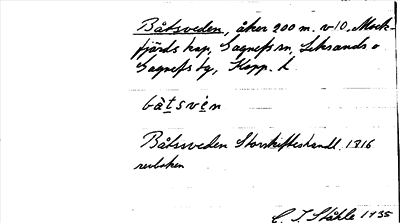 Båtsveden, åker 200 m. v.10. Mock-
fjärds kap, Gagnefs sn, Leksands o
Gagnefs tg, Kopp. l.
bà̀tsvèn
Båtsveden Storskifteshandl. 1816
revboken
C. I. Ståhle 1935